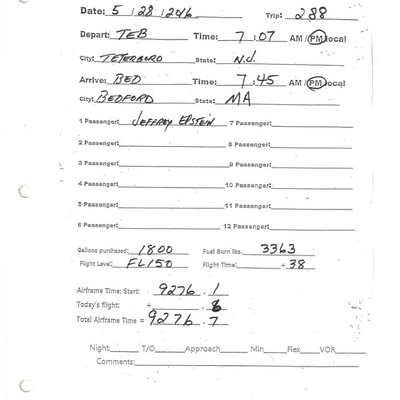 Date: 5 / 28 / 2016 Trip: 288
Depart: TEB Time: 7 :07 AM / PM local
City: TETERBORO State: N.J.
Arrive: BED Time: 7 :45 AM / PM local
City: BEDFORD State: MA
1 Passenger: JEFFREY EPSTEIN 7 Passenger:
2 Passenger: 8 Passenger:
3 Passenger: 9 Passenger:
4 Passenger: 10 Passenger:
5 Passenger: 11 Passenger:
6 Passenger: 12 Passenger:
Gallons purchased: 1800 Fuel Burn lbs. 3363
Flight Level: FL150 Flight Time: +38
Airframe Time: Start: 9276 . 1
Today's flight: + . 6
Total Airframe Time = 9276 . 7
Night: T/O Approach Min Flex VOR
Comments: